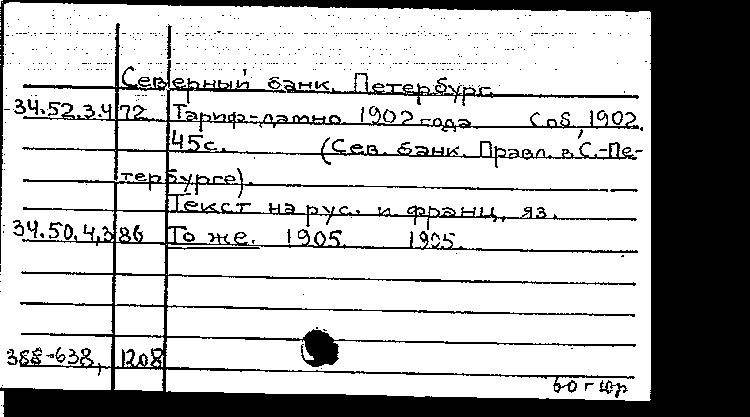 Северный банк. Петербург.
34.52.3.4 72 Тариф-датно 1902 года Спб, 1902.
45с. (Сев. банк. Правл. в С.-Пе-
тербурге).
Текст на рус. и франц. яз.
34.50.4,3 86 То же. 1905 1905.
388-638, 1208